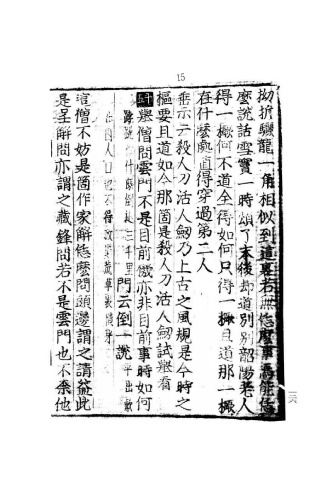 15
拗折驪龍一角相似到這裏若無恁麼事焉能恁
麼說話雪竇一時頌了末後却道別別韶陽老人
得一橛何不道全得如何只得一橛且道那一橛
在什麼處直得穿過第二人
垂示云殺人刀活人劒乃上古之風規是今時之
樞要且道如今那箇是殺人刀活人劒試舉看
舉僧問雲門不是目前機亦非目前事時如何
跳作什麼倒退三千里門云倒一說平出欵
出囚人口也不得放過荒草裏橫身
這僧不妨是箇作家解恁麼問頭邊謂之請益此
是呈解問亦謂之藏鋒問若不是雲門也不柰他